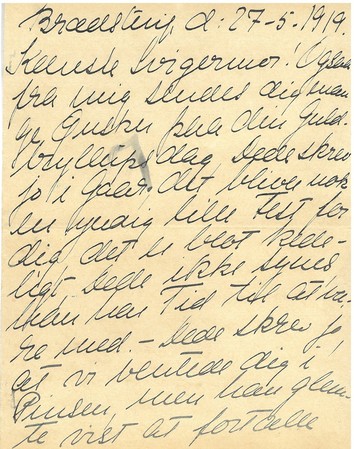 Braedstrup, d: 27-5-1919.
Kæreste Svigermor! Ogsaa
fra mig sendes dig man-
ge Ønsker paa din Guld-
bryllupsdag. Dede skrev
jo i Gaar, det bliver nok
en yndig lille Fest for
dig det er blot kede-
ligt Dede ikke synes
han har Tid til at væ-
re med. - Dede skrev jo,
at vi ventede dig i
Pinsen, men han glem-
te vist at fortælle